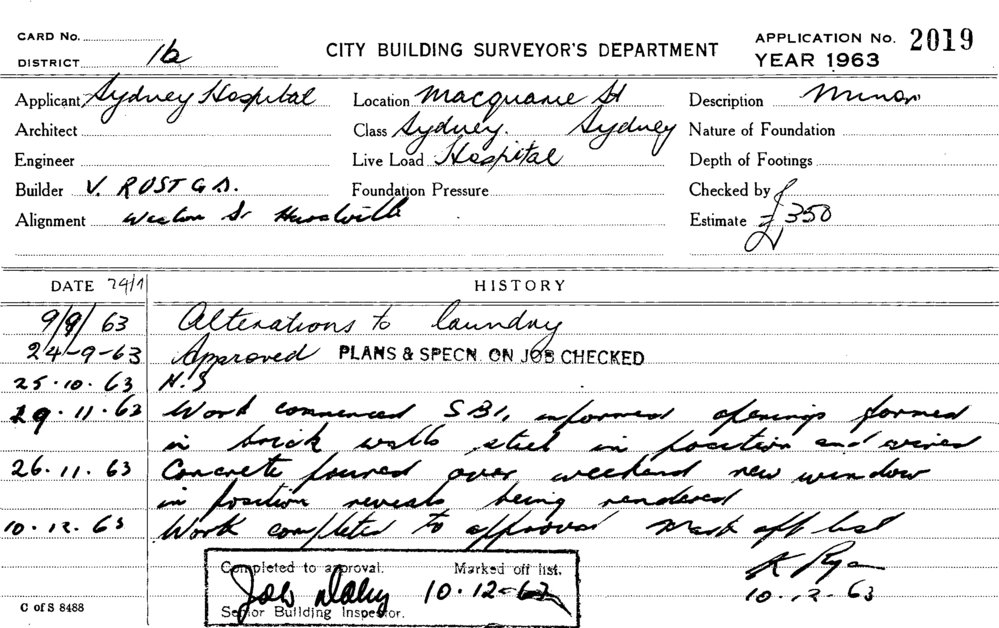 CARD No.
DISTRICT 1b
CITY BUILDING SURVEYOR'S DEPARTMENT
APPLICATION No. 2019
YEAR 1963
Applicant Sydney Hospital
Location Macquarie St
Description Minor
Architect
Class Sydney. Sydney
Nature of Foundation
Engineer
Live Load Hospital
Depth of Footings
Builder V. ROST
Foundation Pressure
Checked by
Alignment St Hurstville
Estimate £350
DATE 29/1
HISTORY
9/9/63 Alterations to laundry
24-9-63 Approved PLANS & SPECN. ON JOB CHECKED
25.10.63 N.S
29.11.63 Work commenced SBI, informed openings formed
in brick walls steel in position and wired
26.11.63 Concrete poured over weekend new window
in position reveals being rendered
10.12.63 Work completed to approval Mark off list
K Ryan
10.12.63
Completed to approval. Marked off list.
10.12.63
Senior Building Inspector.
C of S 8488